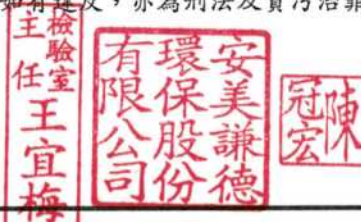 如有違反，亦為刑法及貪污治罪
檢驗室
主任 王宜梅
安美謙德
環保股份
有限公司
陳冠宏